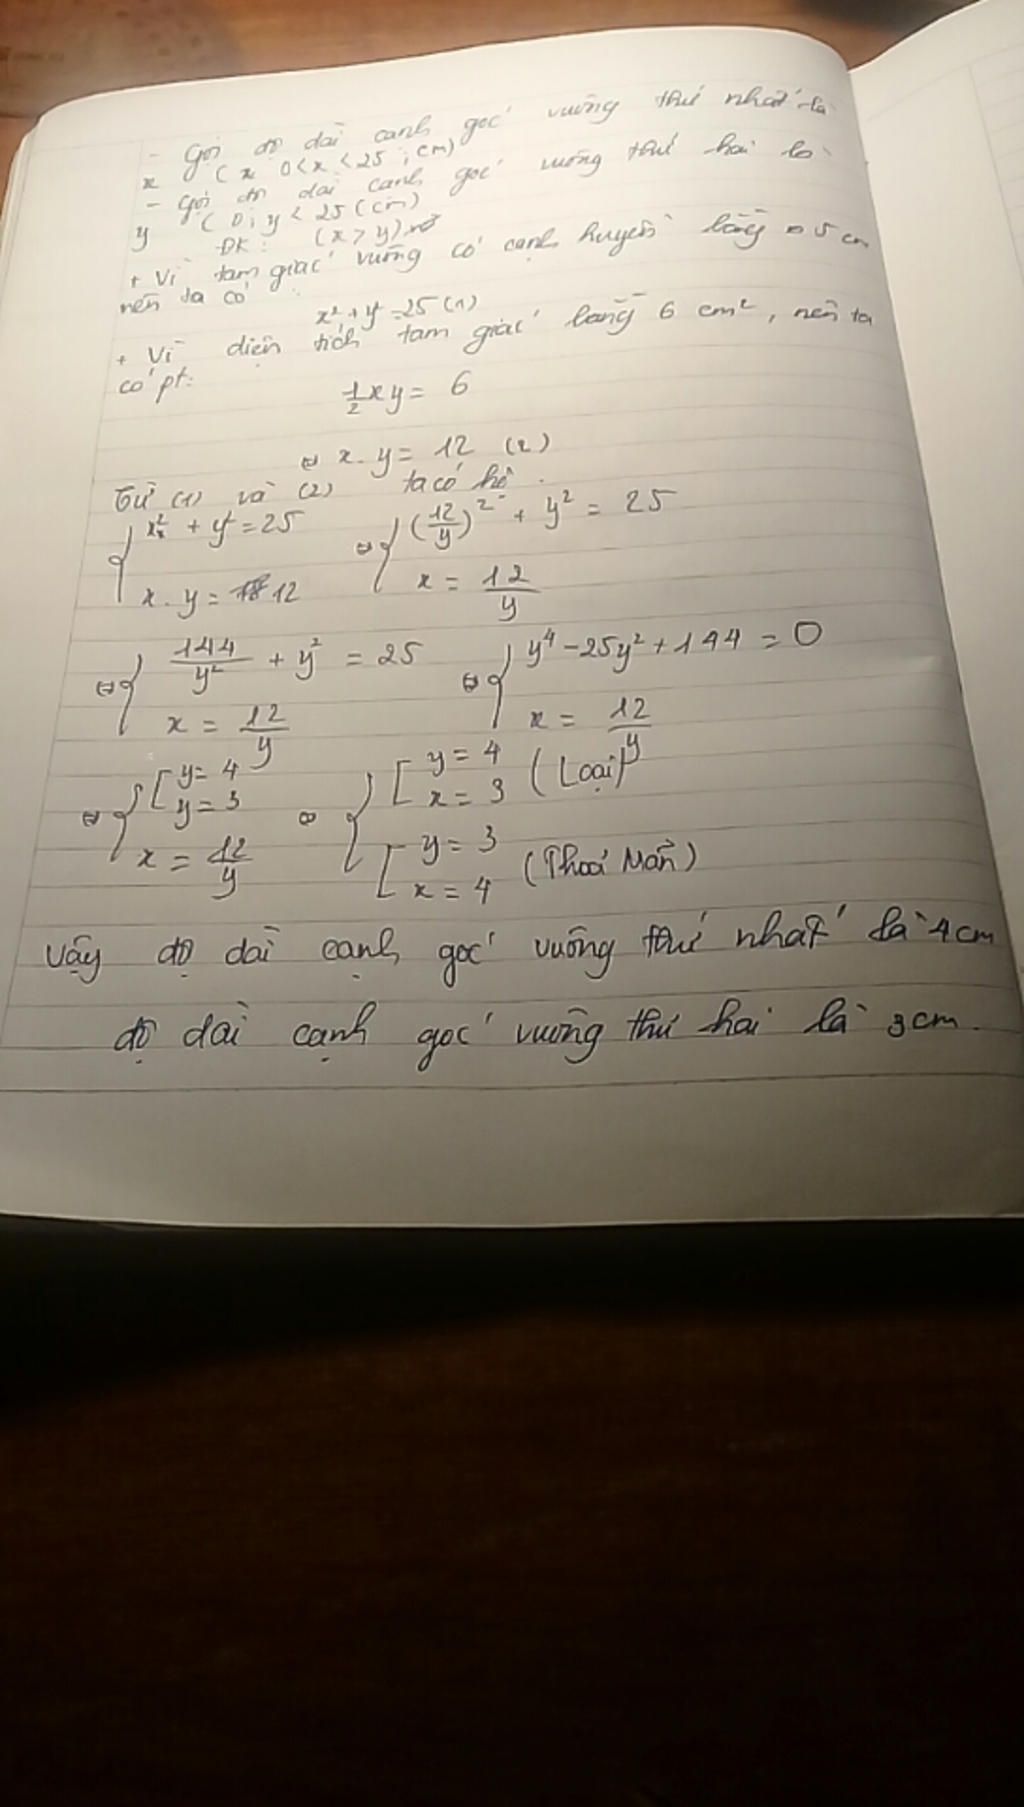 - Gọi độ dài cạnh góc vuông thứ nhất là
x ( x 0 < x < 25 ; cm)
- Gọi độ dài cạnh góc vuông thứ hai là
y ( 0 ; y < 25 (cm)
ĐK : (x > y)
+ Vì tam giác vuông có cạnh huyền bằng 5 cm
nên ta có
x² + y² = 25 (1)
+ Vì diện tích tam giác bằng 6 cm², nên ta
có pt:
1/2 xy = 6
⇔ x . y = 12 (2)
Từ (1) và (2) ta có hệ .
{ x² + y² = 25 ⇔ { (12/y)² + y² = 25
x . y = 12 x = 12/y
⇔ { 144/y² + y² = 25 ⇔ { y⁴ - 25y² + 144 = 0
x = 12/y x = 12/y
⇔ { [ y = 4 ⇔ { [ y = 4
y = 3 x = 3 (Loại)
x = 12/y [ y = 3
x = 4 (Thoả Mãn)
Vậy độ dài cạnh góc vuông thứ nhất là 4cm
độ dài cạnh góc vuông thứ hai là 3cm.